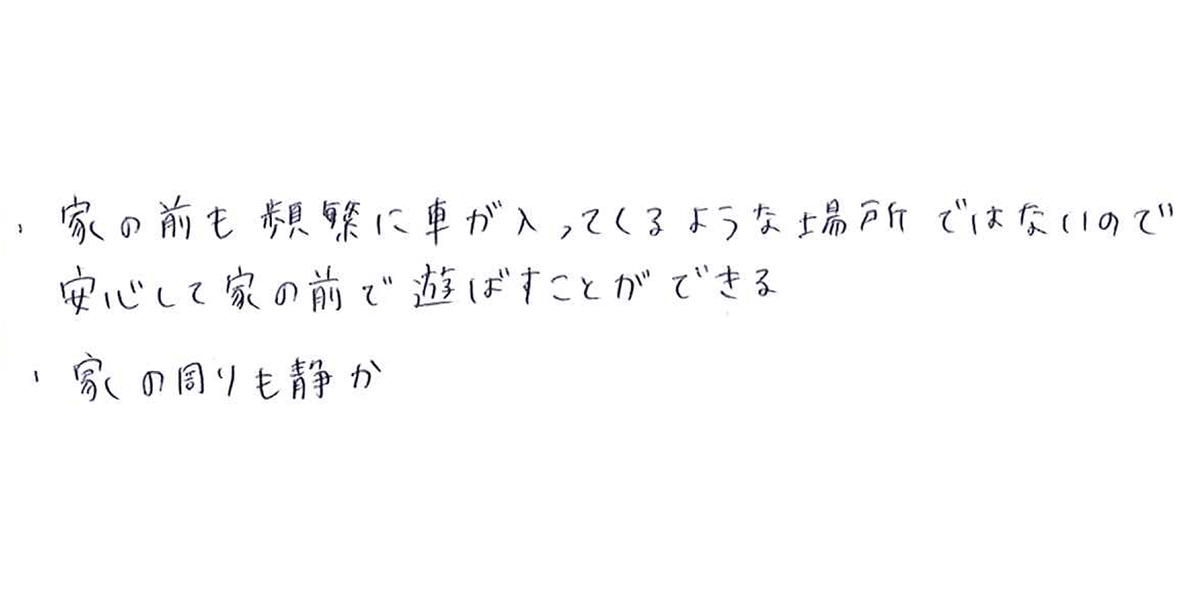 ・家の前も頻繁に車が入ってくるような場所ではないので
安心して家の前で遊ばすことができる
・家の周りも静か